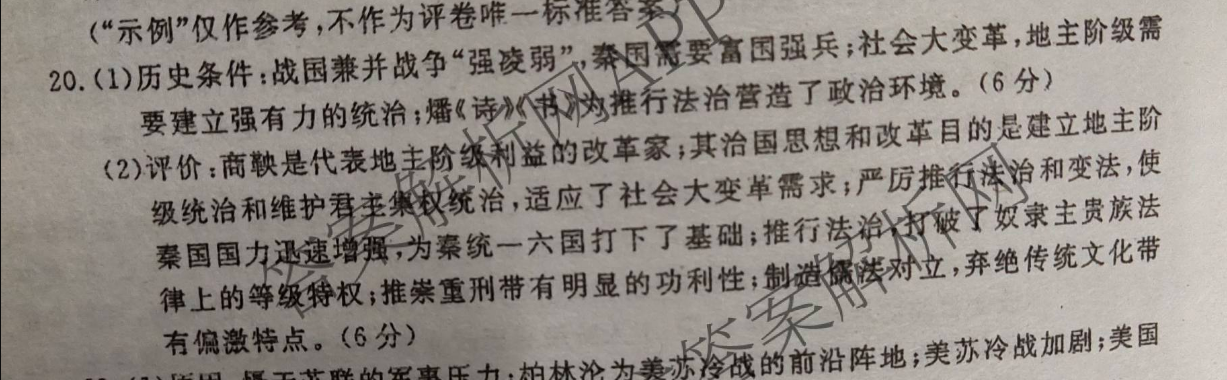 (“示例”仅作参考,不作为评卷唯一标准答案)
20.(1)历史条件:战国兼并战争“强凌弱”,秦国需要富国强兵;社会大变革,地主阶级需
要建立强有力的统治;燔《诗》《书》为推行法治营造了政治环境。(6分)
(2)评价:商鞅是代表地主阶级利益的改革家;其治国思想和改革目的是建立地主阶
级统治和维护君主集权统治,适应了社会大变革需求;严厉推行法治和变法,使
秦国国力迅速增强,为秦统一六国打下了基础;推行法治,打破了奴隶主贵族法
律上的等级特权;推崇重刑带有明显的功利性;制造儒法对立,弃绝传统文化带
有偏激特点。(6分)
苏联的军事压力;柏林沦为美苏冷战的前沿阵地;美苏冷战加剧;美国
答案解析网APP
答案解析网